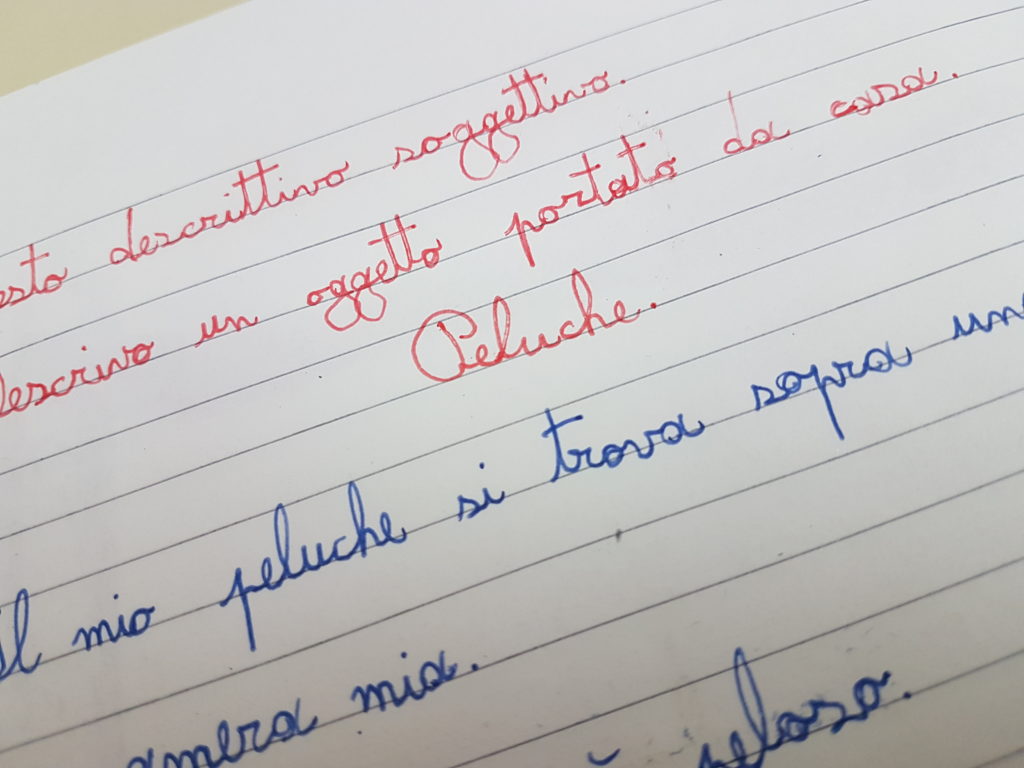 esto descrittivo soggettivo.
descrivo un oggetto portato da casa.
Peluche.
Il mio peluche si trova sopra un
amera mia.
peloso.